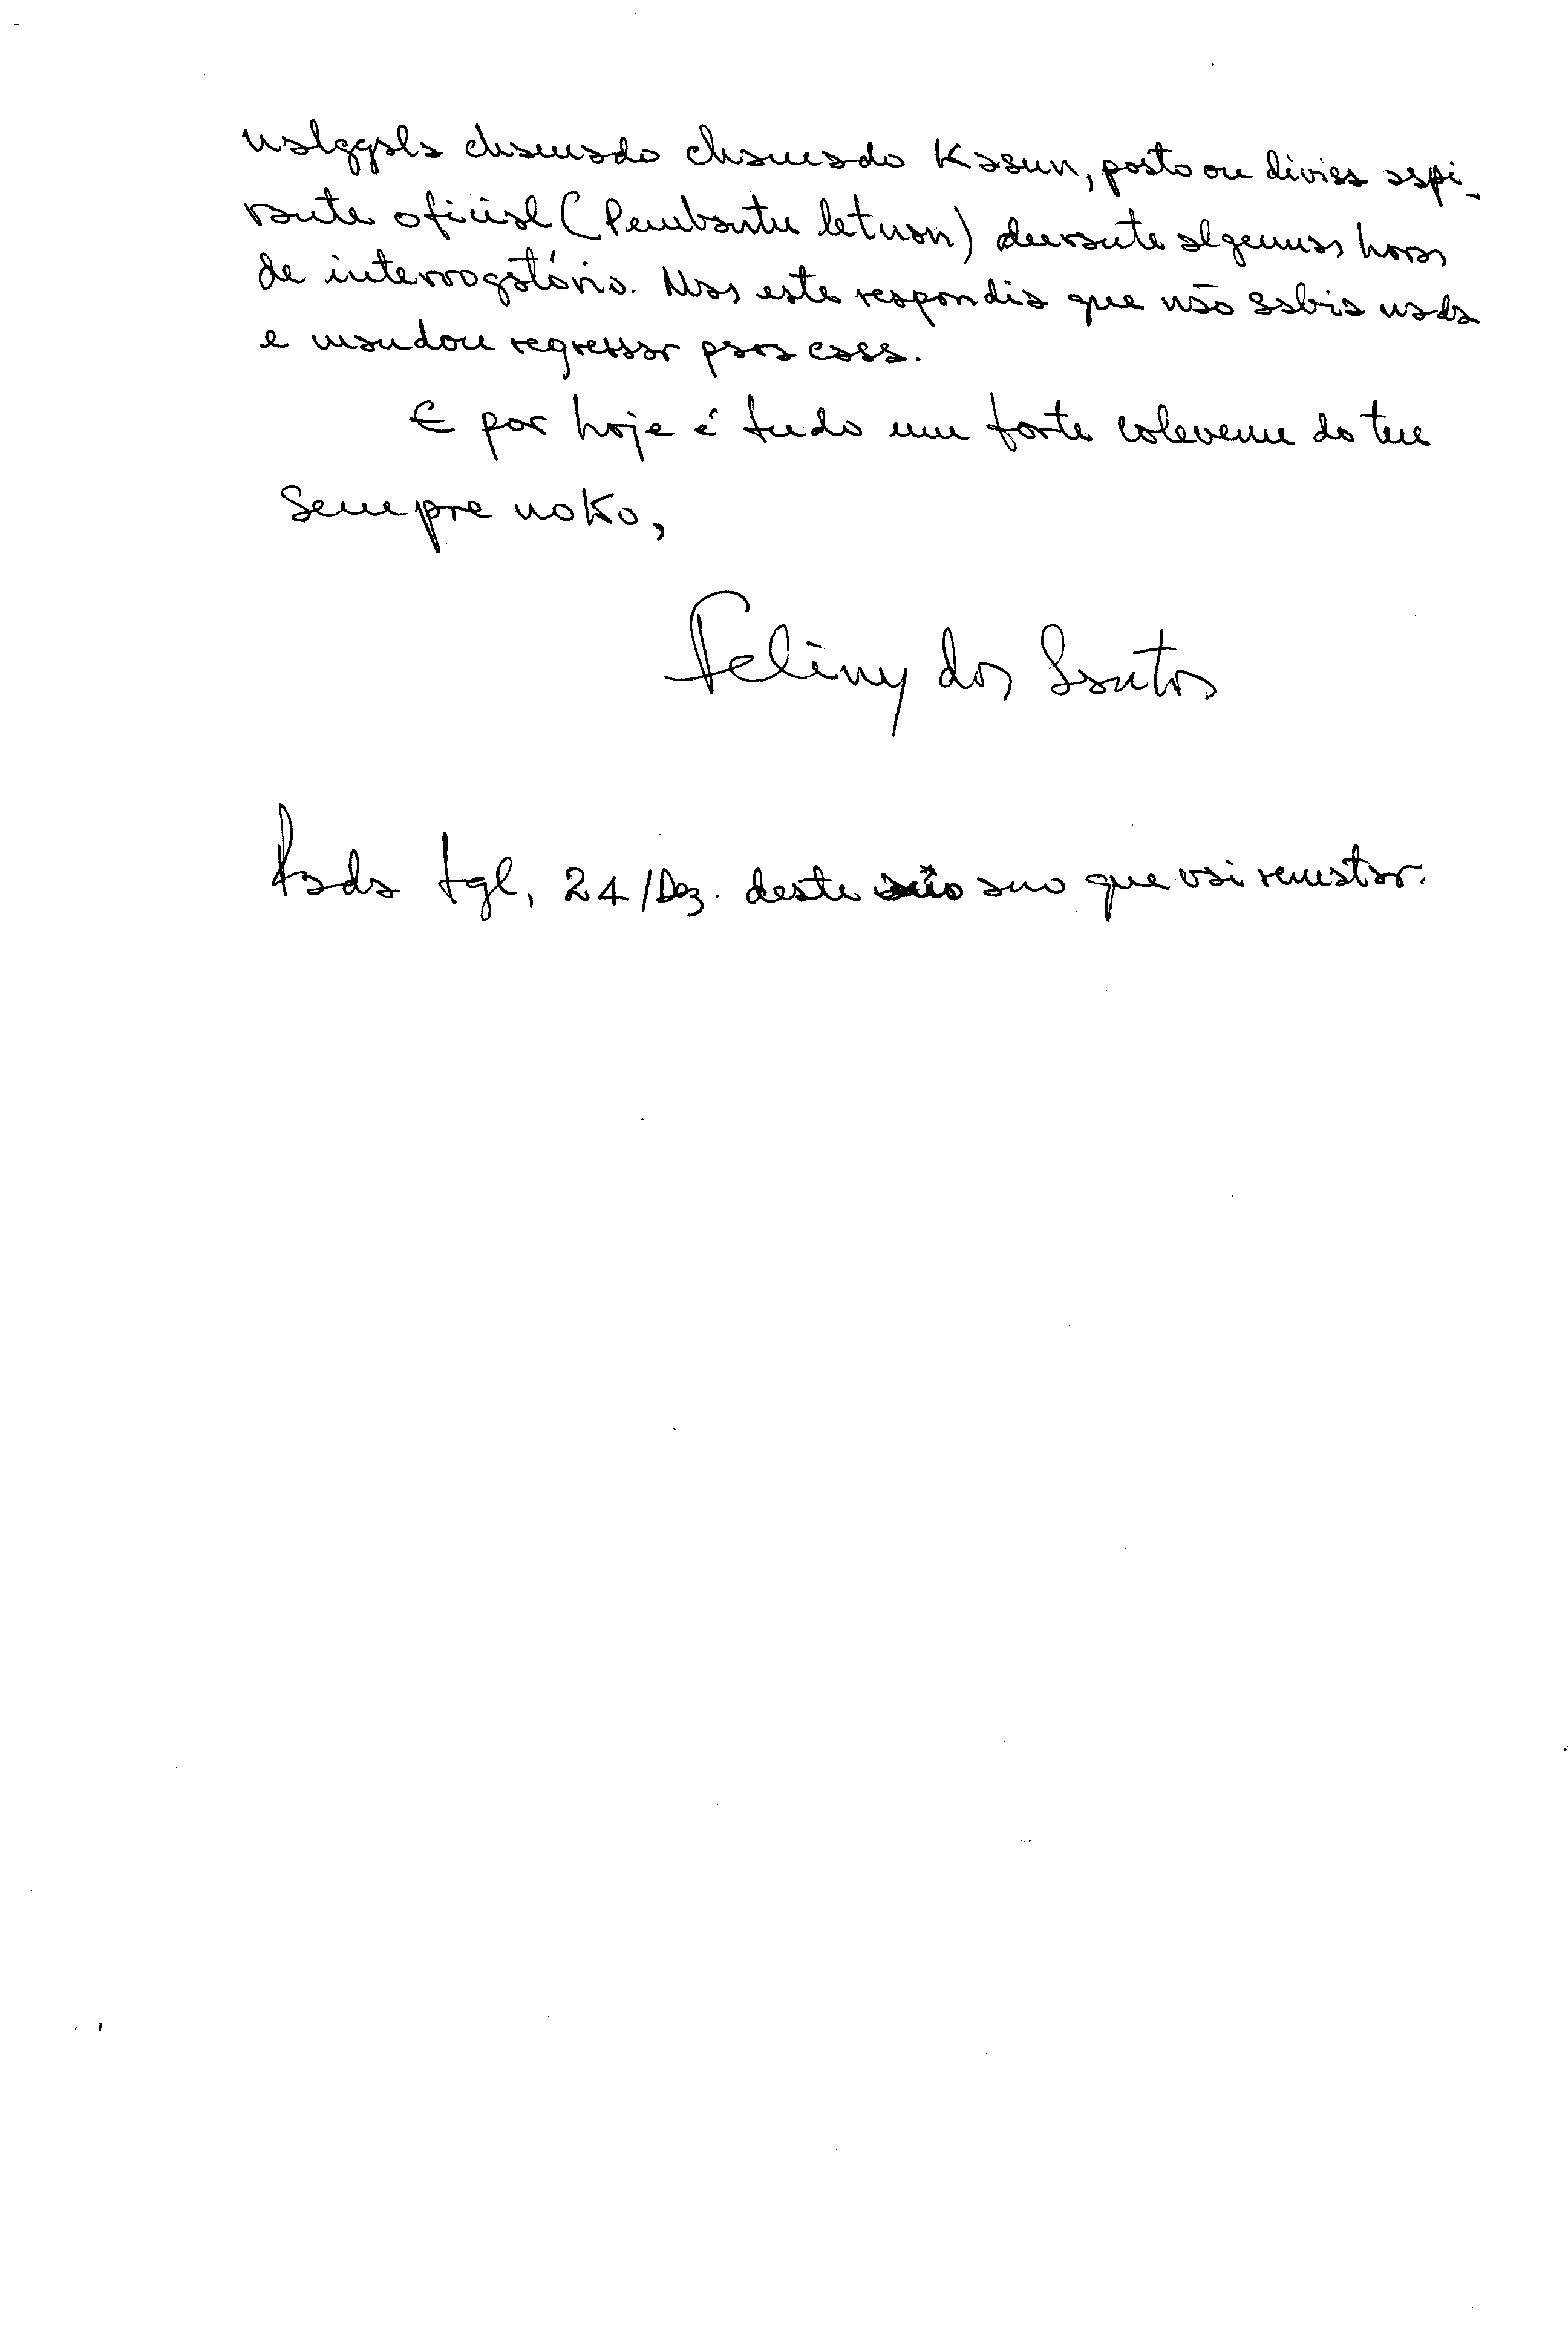 nalggala chamado chamado Kasun, posto ou divisa aspi-
rante oficial (Pembantu letnan) durante algumas horas
de interrogatório. Mas este respondia que não sabia nada
e mandou regressar para casa.
E por hoje é tudo um forte colevenu do teu
Sempre noko,
Feliny dos Santos
Pada tgl, 24/Dez. deste ano que vai rematar.